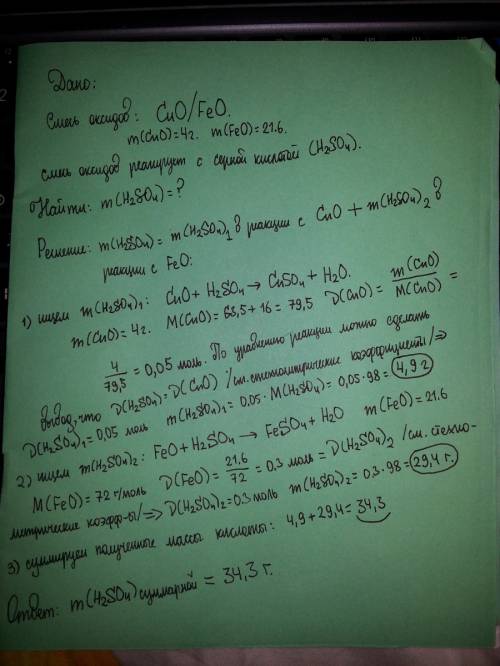 Дано:
Смесь оксидов: CuO/FeO.
m(CuO)=4г. m(FeO)=21.6.
смесь оксидов реагирует с серной кислотой (H₂SO₄).
Найти: m(H₂SO₄)=?
Решение: m(H₂SO₄) = m(H₂SO₄)₁ в реакции с CuO + m(H₂SO₄)₂ в
реакции с FeO:
1) ищем m(H₂SO₄)₁: CuO + H₂SO₄ → CuSO₄ + H₂O.
m(CuO)=4г. M(CuO)=63,5+16=79,5 D(CuO) = m(CuO)/M(CuO) =
4/79,5 = 0,05 моль. По уравнению реакции можно сделать
вывод, что D(H₂SO₄)=D(CuO) /см. стехиометрические коэффициенты/⇒
D(H₂SO₄)₁=0,05 моль m(H₂SO₄)₁=0.05·M(H₂SO₄)=0,05·98=4,9г
2) ищем m(H₂SO₄)₂: FeO+H₂SO₄ → FeSO₄+H₂O m(FeO)=21.6
M(FeO)=72 г/моль D(FeO)=21,6/72=0.3 моль=D(H₂SO₄)₂ /см. стехио-
метрические коэфф-ы/⇒D(H₂SO₄)₂=0.3моль m(H₂SO₄)₂=0.3·98=29,4 г.
3) суммируем полученные массы кислоты: 4,9+29,4=34,3
Ответ: m(H₂SO₄) суммарной = 34,3 г.